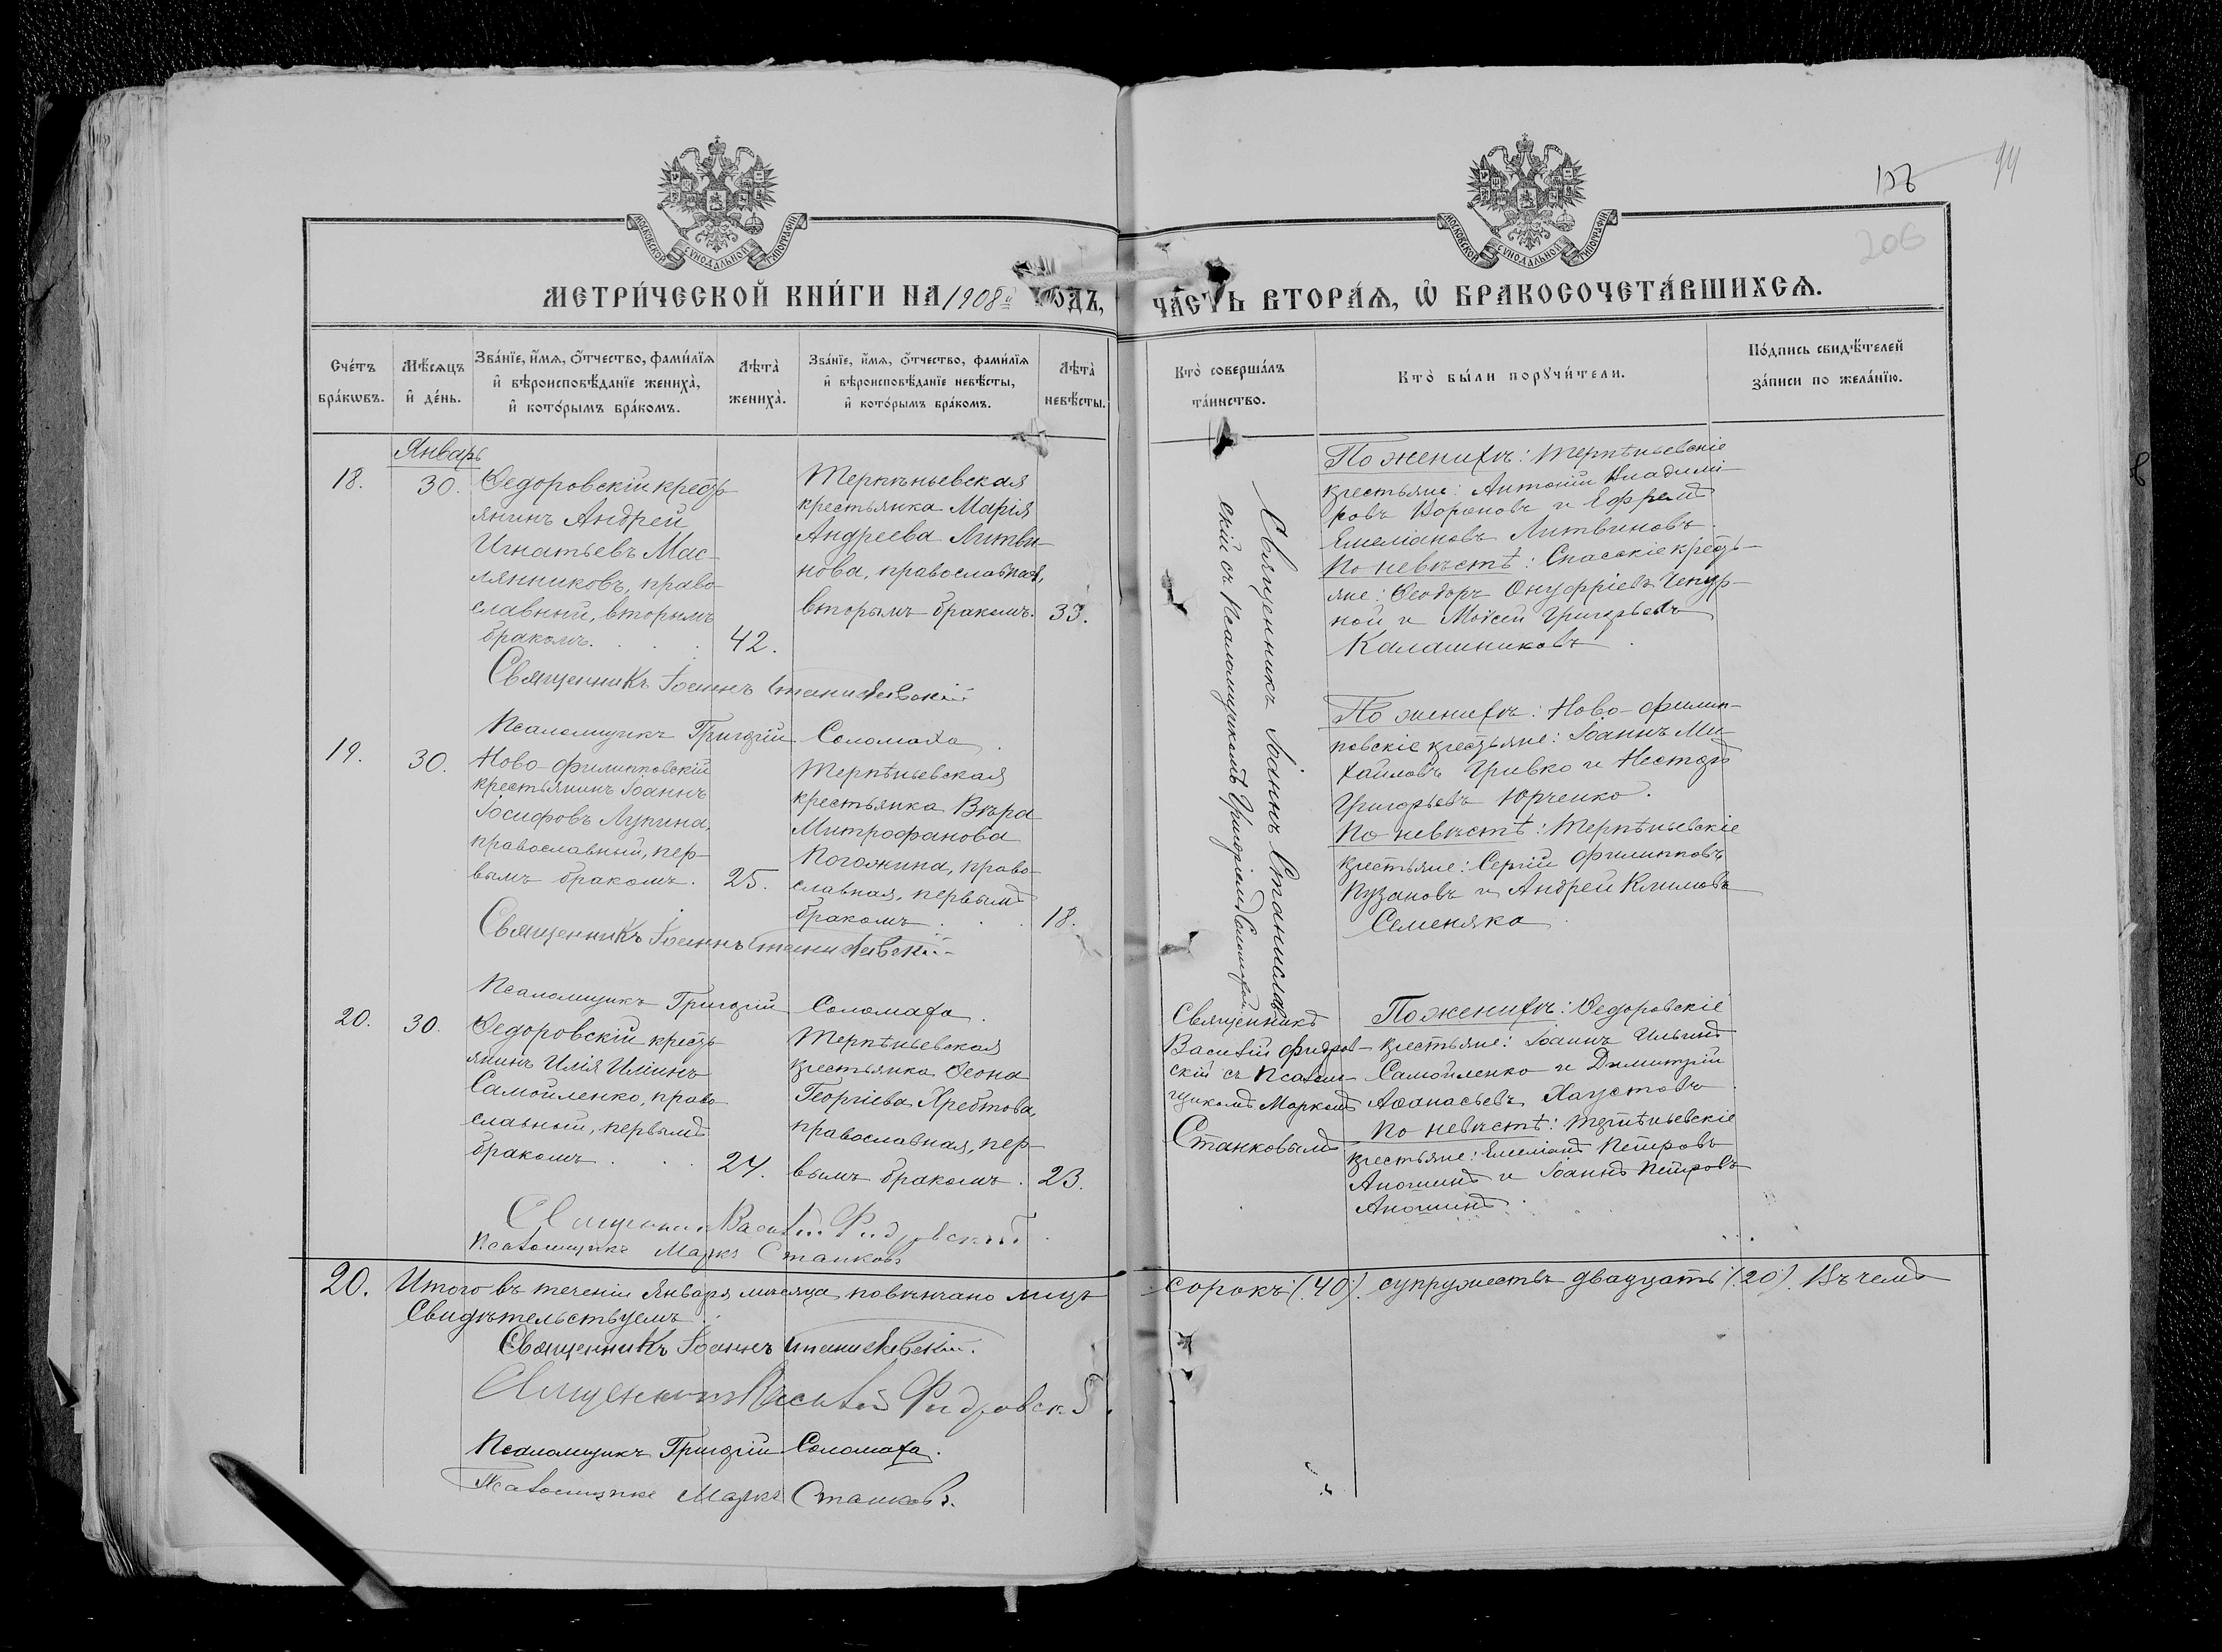 156
94
206
МОСКОВСКОЙ СѴНОДАЛЬНОЙ ТИПОГРАФІИ
МОСКОВСКОЙ СѴНОДАЛЬНОЙ ТИПОГРАФІИ
МЕТРИ́ЧЕСКОЙ КНИ́ГИ НА 1908й ГОДЪ,
ЧА́СТЬ ВТОРА́Ѧ, Ѽ БРАКОСОЧЕТА́ВШИХСѦ.
Сче́тъ бра́кѡвъ.
Мѣ́сѧцъ и҆ де́нь.
Зва́нїе, и҆́мѧ, ѻ҆́тчество, фами́лїѧ
и҆ вѣроисповѣ́данїе жениха̀,
и҆ кото́рымъ бра́комъ.
Лѣта̀ жениха̀.
Зва́нїе, и҆́мѧ, ѻ҆́тчество, фами́лїѧ
и҆ вѣроисповѣ́данїе невѣ́сты,
и҆ кото́рымъ бра́комъ.
Лѣта̀ невѣ́сты.
Кто̀ соверша́лъ
та́инство.
Кто̀ бы́ли порꙋчи́тели.
По́дпись свидѣ́телей
за́писи по жела́нїю.
Январь
18.
30.
Ѳедоровскій кресть-
янинъ Андрей
Игнатьевъ Мас-
лянниковъ, право-
славный, вторымъ
бракомъ.
42.
Терпѣньевская
крестьянка Марія
Андреева Литви-
нова, православная,
вторымъ бракомъ.
33.
Священникъ Іоаннъ Станиславскій
Псаломщикъ Григорій Соломаха.
Священникъ Іоаннъ Станислав-
скій съ Псаломщикомъ Григоріемъ Соломахой
По женихѣ: Терпѣньевскіе
крестьяне: Антоній Владимі-
ровъ Вороновъ и Ефремъ
Емеліановъ Литвиновъ.
По невѣстѣ: Спасскіе кресть-
яне: Ѳеодоръ Онуфріевъ Чепур-
ной и Моѵсей Григорьевъ
Калашниковъ.
19.
30.
Ново-филипповскій
крестьянинъ Іоаннъ
Іосифовъ Лупина,
православный, пер-
вымъ бракомъ.
25.
Терпѣньевская
крестьянка Вѣра
Митрофанова
Погожина, право-
славная, первымъ
бракомъ.
18.
Священникъ Іоаннъ Станиславскій
Псаломщикъ Григорій Соломаха.
По женихѣ: Ново-филип-
повскіе крестьяне: Іоаннъ Ми-
хайловъ Гривко и Несторъ
Григорьевъ Юрченко.
По невѣстѣ: Терпѣньевскіе
крестьяне: Сергій Филипповъ
Пузановъ и Андрей Климовъ
Семеняка.
20.
30.
Ѳедоровскій кресть-
янинъ Илія Иліинъ
Самойленко, право-
славный, первымъ
бракомъ.
24.
Терпѣньевская
крестьянка Ѳеона
Георгіева Хребтова,
православная, пер-
вымъ бракомъ.
23.
Священникъ
Василій Фидров-
скій съ Псалом-
щикомъ Маркомъ
Станковымъ
По женихѣ: Ѳедоровскіе
крестьяне: Іоаннъ Ильинъ
Самойленко и Димитрій
Аѳанасьевъ Хаустовъ.
По невѣстѣ: Терпѣньевскіе
крестьяне: Емеліанъ Петровъ
Аношинъ и Іоаннъ Петровъ
Аношинъ.
Священникъ Василій Фидровскій
Псаломщикъ Маркъ Станковъ
20. Итого въ теченіи Января мѣсяца повѣнчано лицъ сорокъ (40). супружествъ двадцать (20). Въ чемъ
Свидѣтельствуемъ:
Священникъ Іоаннъ Станиславскій.
Священникъ Василій Фидровскій.
Псаломщикъ Григорій Соломаха.
Псаломщикъ Маркъ Станковъ.